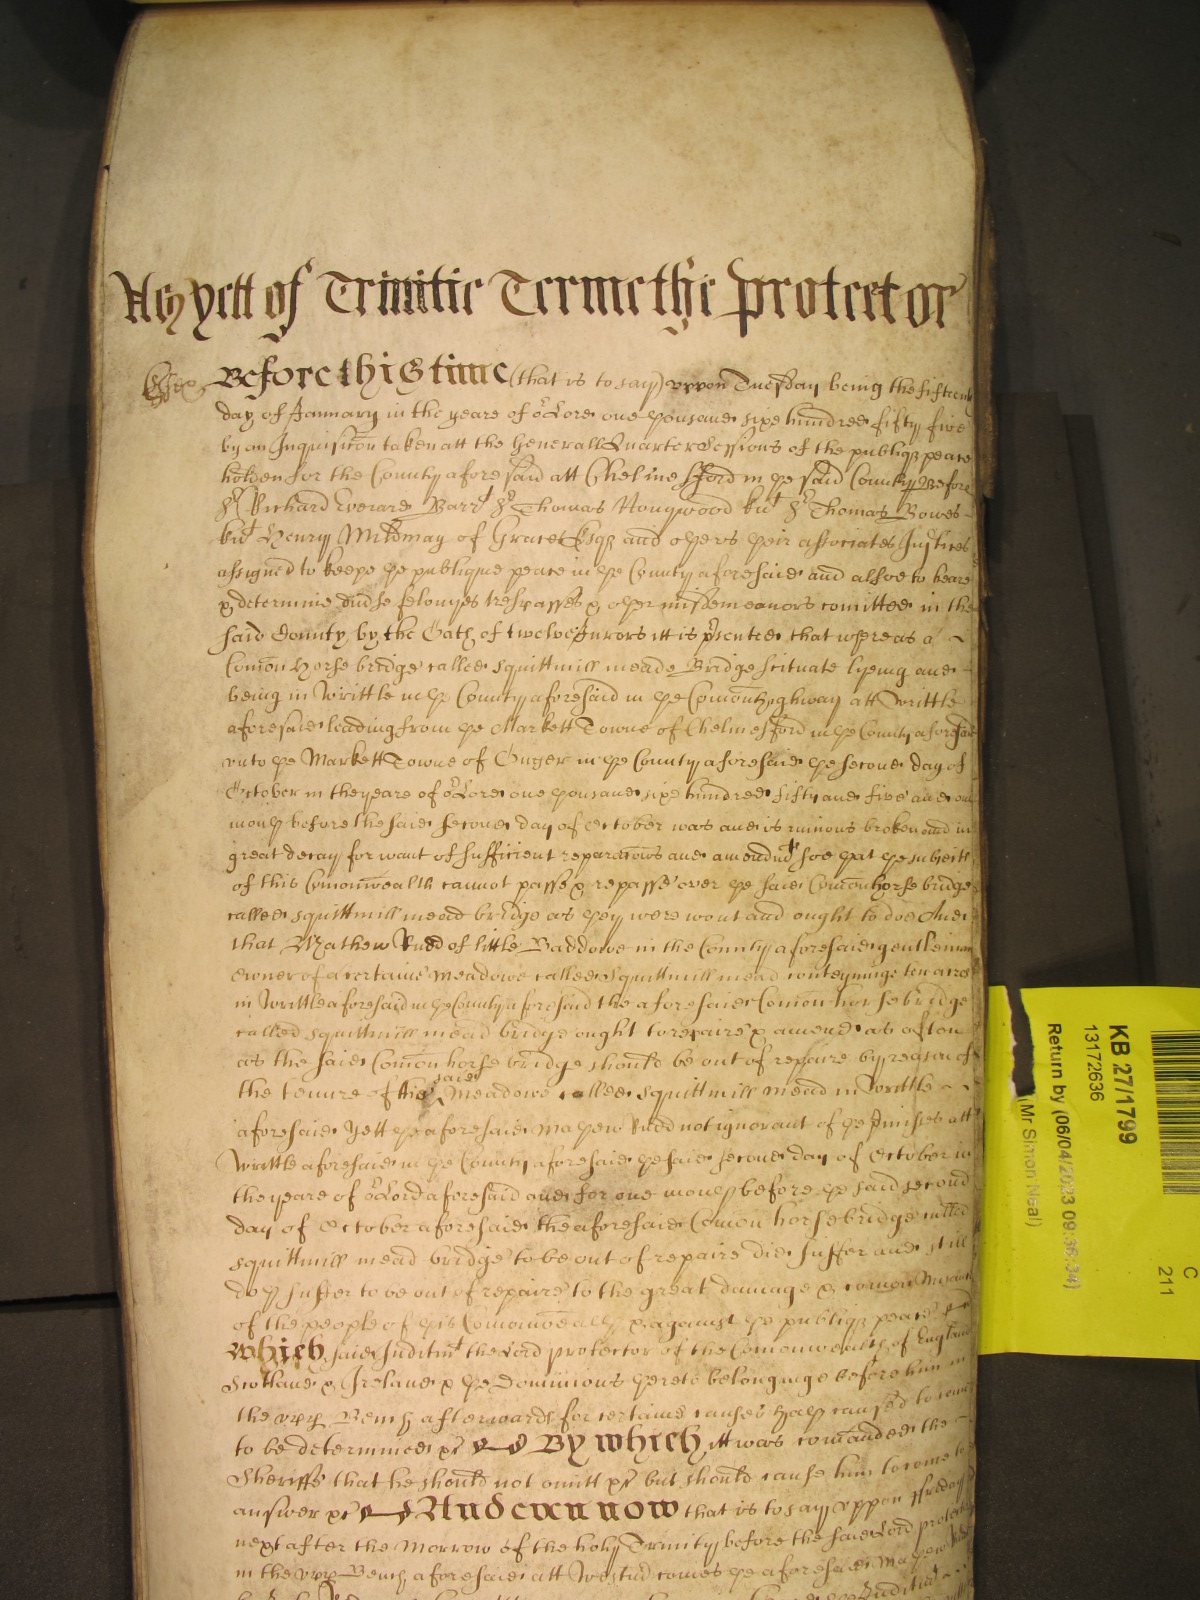 As yett of Trinitie Terme the protector
Essex Before this time (that is to say) uppon Tuesday being the fifteenth
day of January in the yeare of or Lord one thousand sixe hundred fifty five
by an Inquisicon taken att the Generall Quarter Sessions of the publiqz peace
holden for the County aforesaid att Chelmesfford in the said County Before
Sr Richard Everard Barrt Sr Thomas Honywood kt Sr Thomas Bowes
kt Henry Mildmay of Graces Esqz and others their associates Justices
assigned to keepe the publique peace in the County aforesaid and alsoe to heare
& determine divse felonyes trespasses & other misdemeanors comitted in the
said County by the Oath of twelve Jurors itt is psented that whereas a
Comon horse bridge called Squittmill meade Bridge scituate lyeing and
being in Writtle in the County aforesaid in the Comon highway att Writtle
aforesaid leading from the Markett Towne of Chelmesfford in the County aforesaid
unto the Markett Towne of Onger in the County aforesaid the second day of
October in the yeare of or Lord one thousand sixe hundred fifty and five and one
month before the said second day of October was and is ruinous broken and in
great decay for want of sufficient reparacons and amendmt soe that the subjects
of this Comonwealth cannot passe & repasse over the said Comon horse bridge
called squittmill mead bridge as they were wont and ought to doe And
that Mathew Rudd of little Baddowe in the County aforesaid gentleman
owner of a certaine meadowe called Squittmill mead conteyninge ten acres
in Writtle aforesaid in the County aforesaid the aforesaid Comon horse bridge
called squittmill mead bridge ought to repaire & amend as often
as the said Comon horse bridge should be out of repaire by reason of
the tenure of his said Meadowe called squittmill mead in Writtle
aforesaid Yett the aforesaid Mathew Rudd not ignorant of the pmisses att
Writtle aforesaid in the County aforesaid the said second day of October in
the yeare of or Lord aforesaid and for one month before the said second
day of October aforesaid the aforesaid Comon horse bridge called
squittmill mead bridge to be out of repaire did suffer and still
doth suffer to be out of repaire to the great damage & comon Nusance
of the people of this Comonwealth & against the publiqz peace
Which said Inditmt the Lord protector of the Comonwealth of England
Scotland & Ireland & the Dominions thereto belonginge before him in
the uppr Bench afterwards for certaine causes hath caused to come
to be determined &c By which itt was comanded the
Sheriffe that he should not omitt &c but should cause him to come to
answer &c And even now that is to say uppon ffryday
next after the Morrow of the holy Trinity before the said Lord protector
in the uppr Bench aforesaid att Westmr comes the aforesaid Mathew Rudd
KB 27/1799
13172636
Return by (06/04/2023 09:36:34)
(Mr Simon Neal)
C
211